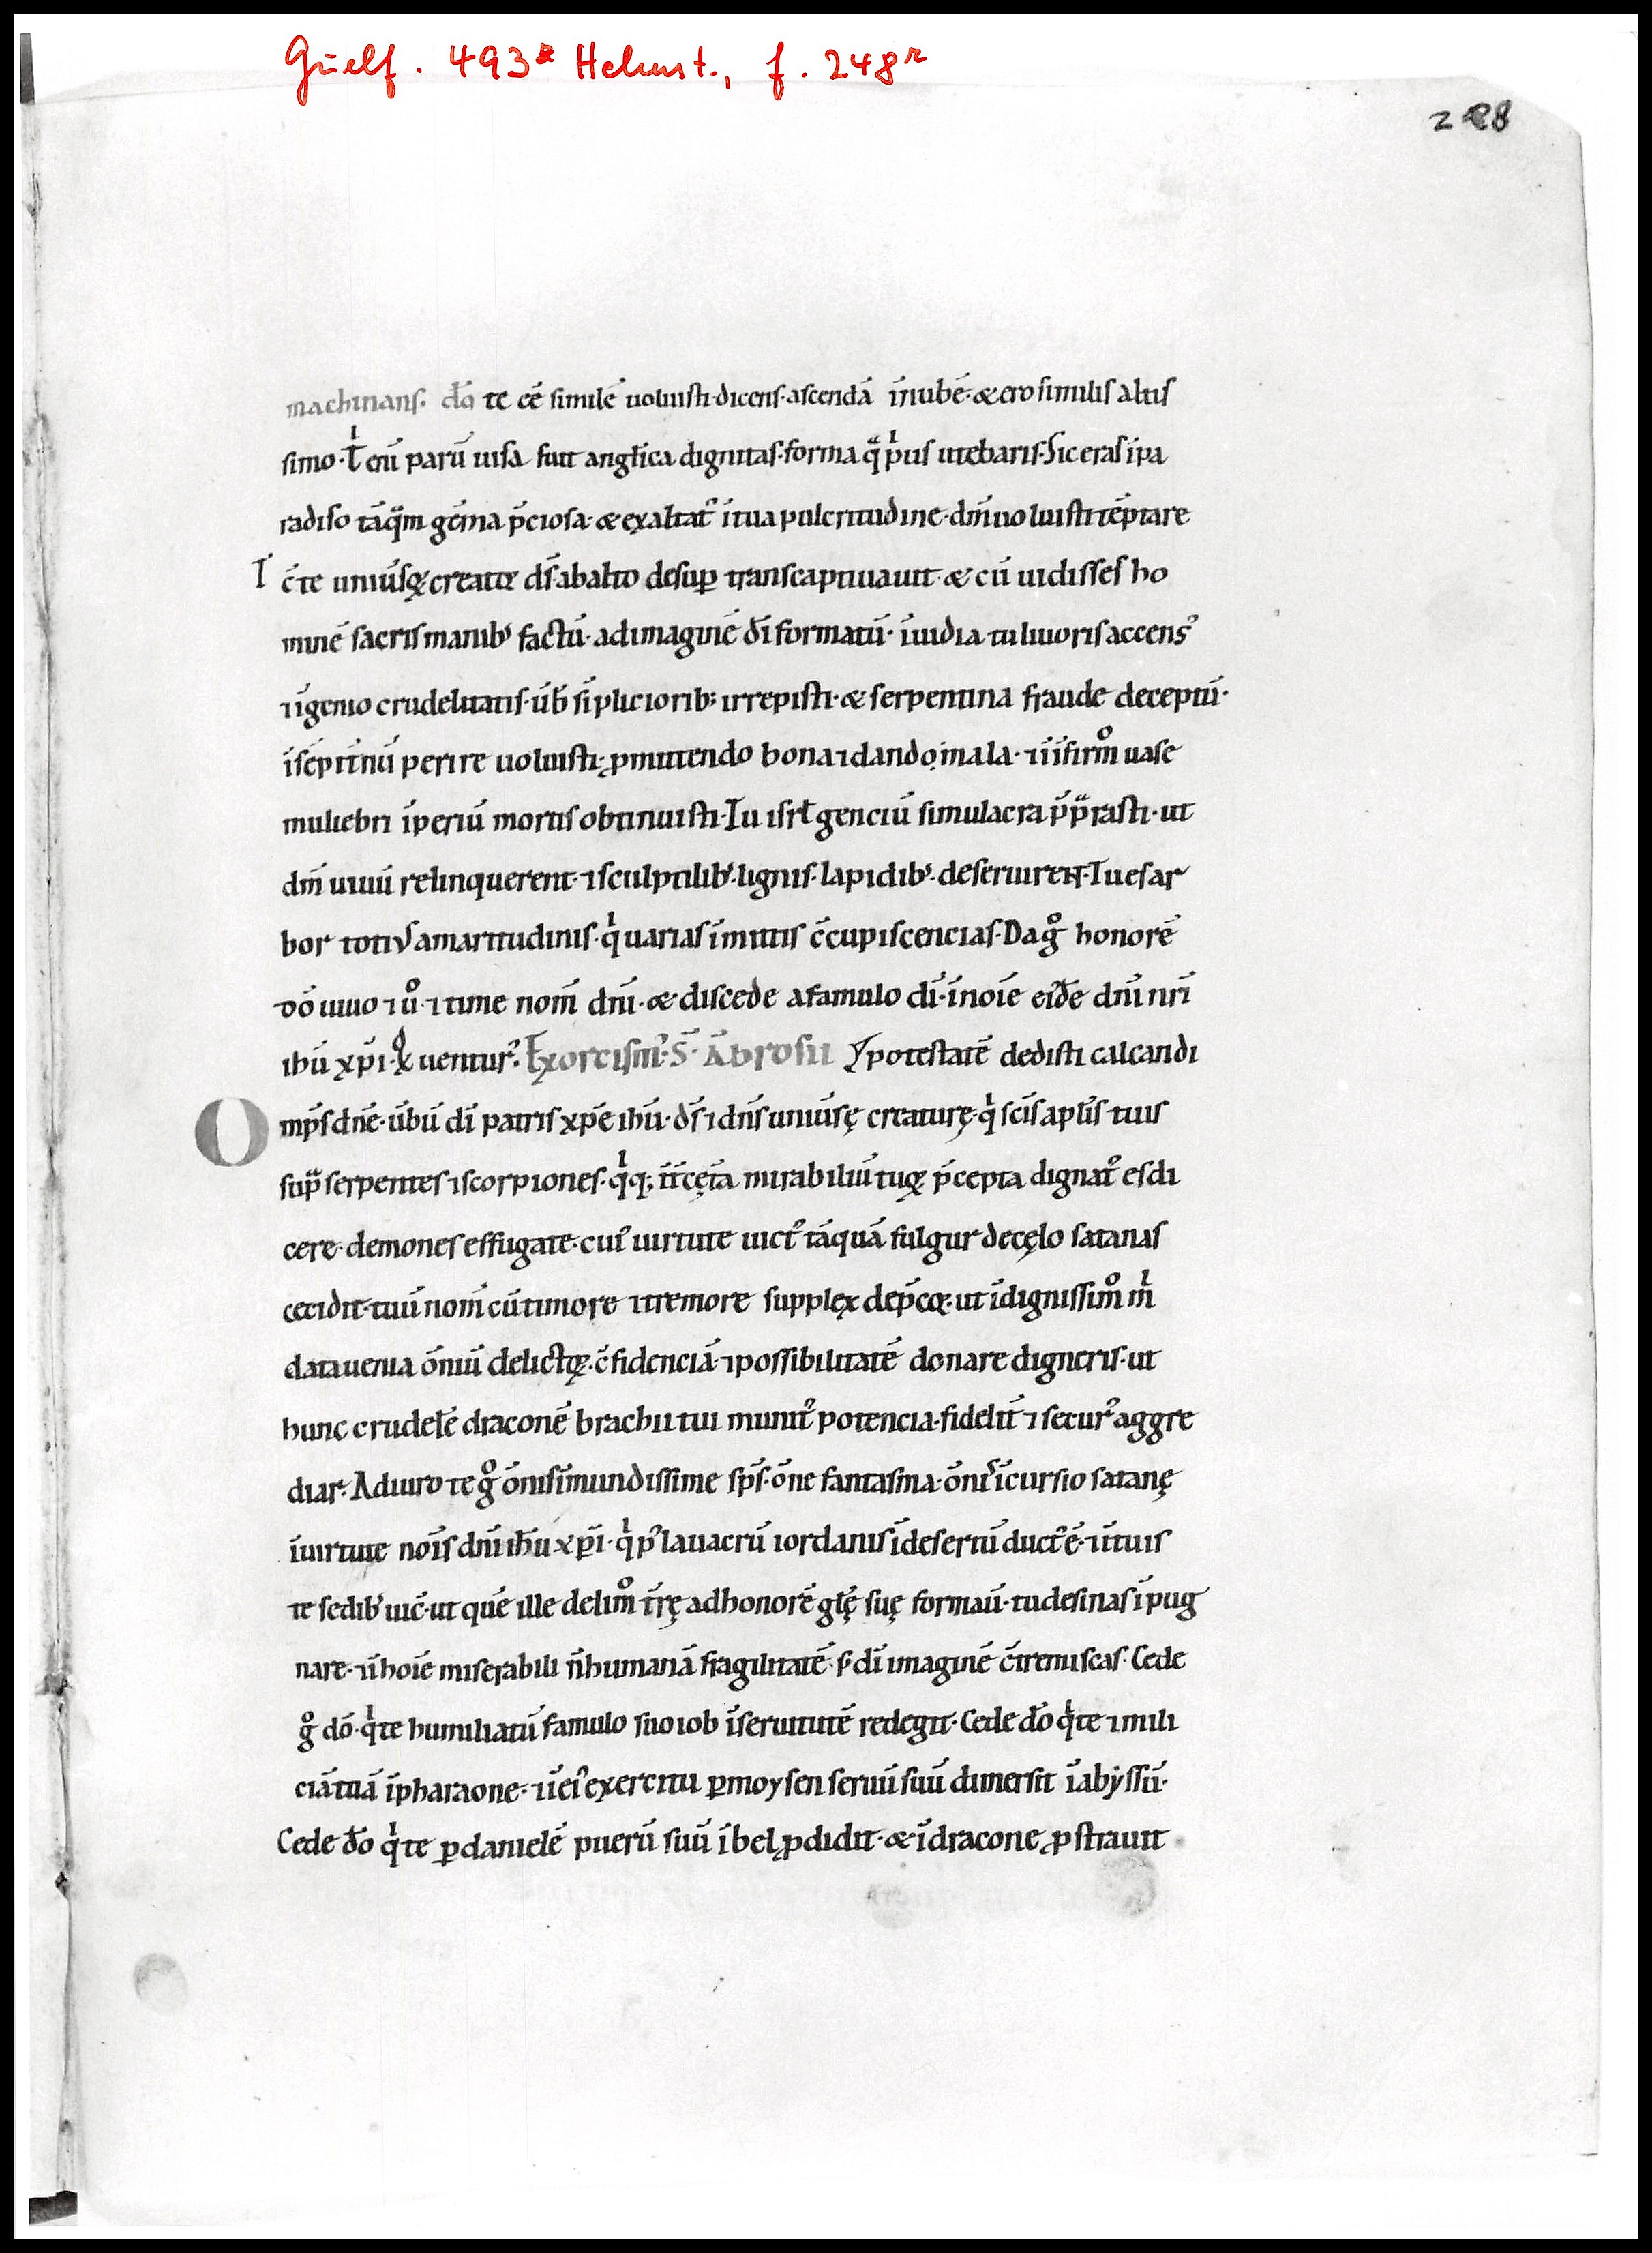 Guelf. 493a Helmst., f. 248r
248
machinans. dō te eē̄ similē uoluisti·dicens·ascendā īnubē·& ero similis altis
simo·T̄ enī parū uisa fuit angłica dignitas·forma q̄ pͥus utebaris·Sic eras ipa
radiso tāq̄m gēma p̄ciosa·& exaltatꝰ ītua pulcritudine·dm̄ uoluisti tēptare
T c̄te uniūsꝙ creatꝵ ds̄·abalto desuꝑ transcaptiuauit·& cū uidisses ho
minē sacris manibꝰ factū·adimaginē dī formatū·īuidia tu liuoris accensꝰ
⁊īgenio crudelitatis·ūb̄ sīpliciorib; irrepisti·& serpentina fraude deceptū·
īsēpit̄nū perire uoluisti·ꝓmittendo bona⁊dando mala·⁊īīfirmͦ uase
muliebri īperiū mortis obtinuisti·Tu isrł genciū simulacra p̄p̄rasti·ut
dm̄ uiuū relinquerent·⁊sculptilibꝰ·lignis·lapidibꝰ·deseruirent·Tu es ar
bor totiꝰ amaritudinis·qͥ uarias īmittis c̄cupiscencias·Da gͦ honorē
dō uiuo⁊uͦ·⁊time nom̄ dn̄i·& discede afamulo dī·īnoīe eiꝰdē dn̄i nr̄i
ihū xp̄i·qͥ uenturꝰ. Exorcismꝰ·S·Ābrosii potestatē dedisti calcandi
Omp̄s dn̄e·ūbū dī patris xp̄e ihū·ds̄⁊dn̄s uniūsę creaturę·qͥ scīs aplīs tuis
suꝑ serpentes⁊scorpiones·qͥq; īt̄cęt̄a mirabiliū tuoꝝ p̄cepta dignatꝰ es di
cere·demones effugate·cuiꝰ uirtute uictꝰ tāquā fulgur decęlo satanas
cecidit·tuū nom̄ cūtimore ⁊tremore supplex dep̄coꝵ·ut īdignissimͦ mͥ
data uenia ōniū delictoꝝ·c̄fidenciā·⁊possibilitatē donare digneris·ut
hunc crudelē draconē brachii tui munitꝰ potencia·fidelit̄⁊securꝰ aggre
diar·Adiuro te gͦ ōnisīmundissime sp̄s·ōne fantasma·ōnisīcursio satanę
īuirtute nōis dn̄i ihū xp̄i·qͥ pꝰ lauacrū iordanis īdesertū ductꝰ ē·⁊ītuis
te sedibꝰ uic̄·ut quē ille delimͦ t̄rę adhonorē glę̄ suę formaū·tu desinas īpug
nare·⁊īhoīe miserabili n̄ humanā fragilitatē·s; dī imaginē c̄tremiscas·Cede
gͦ dō·qͥ te humiliatū famulo suo iob īseruitutē redegit·Cede dō qͥ te⁊mili
ciā tuā īpharaone·⁊īeiꝰ exercitu ꝑmoysen seruū suū dimersit īabyssū·
Cede dō qͥ te ꝑdanielē puerū suū ībel ꝓdidit·& īdracone ꝓstrauit